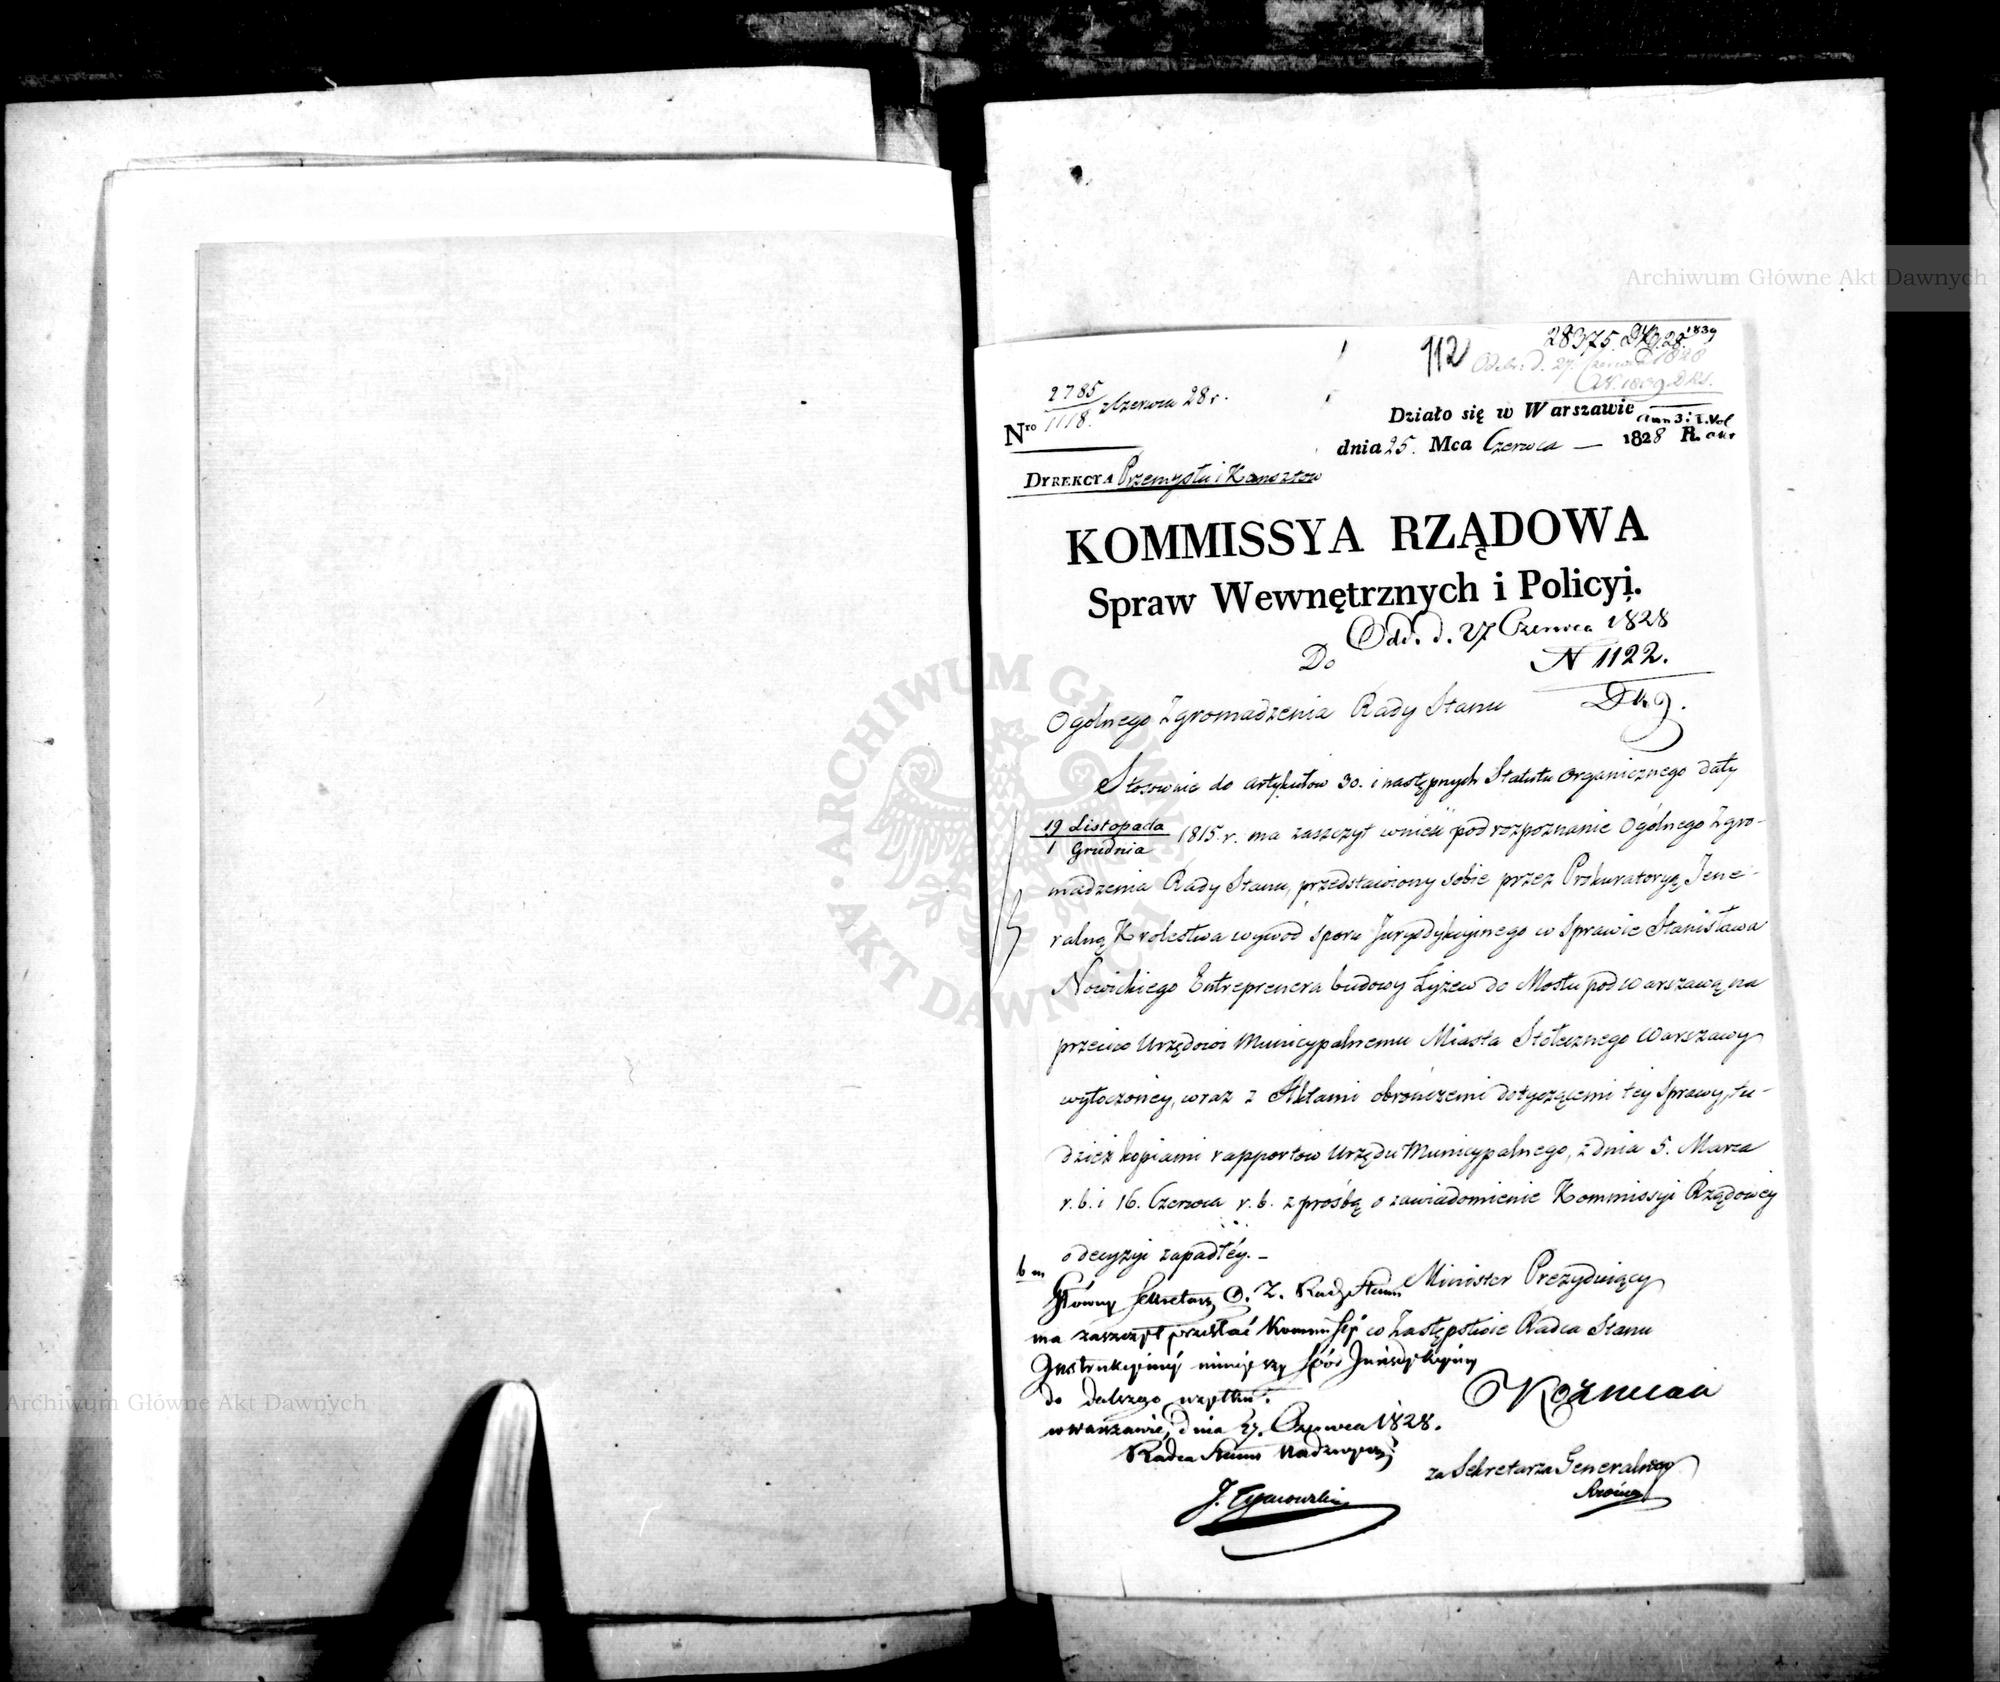 112
28375. 1839
Odebr. d. 27. Czerwca 1828
2785
1118. z Czerwca 28 r.
Nro
Działo się w Warszawie
dnia 25. Mca Czerwca — 1828 R.
DYREKCYA Przemysłu i Kunsztow
KOMMISSYA RZĄDOWA
Spraw Wewnętrznych i Policyi.
Odd. d. 27 Czerwca 1828
N 1122.
Do
Ogólnego Zgromadzenia Rady Stanu
Stosownie do artykułow 30. i następnych Statutu Organicznego daty
19 Listopada
1 Grudnia
1815. r. ma zaszczyt wnieść pod rozpoznanie Ogólnego Zgro-
madzenia Rady Stanu, przedstawiony sobie przez Prokuratoryą Jene-
ralną Krolestwa wywod sporu Jurysdykcyinego w Sprawie Stanisława
Nowickiego Entreprenera budowy Łyżew do Mostu pod Warszawą na
przeciw Urzędowi Municypalnemu Miasta Stołecznego Warszawy
wytoczoney, wraz z Aktami obrończemi dotyczącemi tey Sprawy, tu-
dzież kopiami rapportow Urzędu Municypalnego, z dnia 5. Marca
r. b. i 16. Czerwca r. b. z prośbą o zawiadomienie Kommissyi Rządowéy
o decyzyi zapadłéy. –
Minister Prezyduiący
w Zastępstwie Radca Stanu
Koźmian
za Sekretarza Generalnego
Główny Sekretarz O. Z. Rady Stanu
ma zaszczyt przesłać Kommissyi
Instrukcyinéy ninieyszy spór Jurisdykcyiny
do dalszego użytku.
w Warszawie, dnia 27. Czerwca 1828.
Radca Stanu Nadzwyczayny
J. Tymowski
Archiwum Główne Akt Dawnych
Archiwum Główne Akt Dawnych
ARCHIWUM GŁÓWNE AKT DAWNYCH